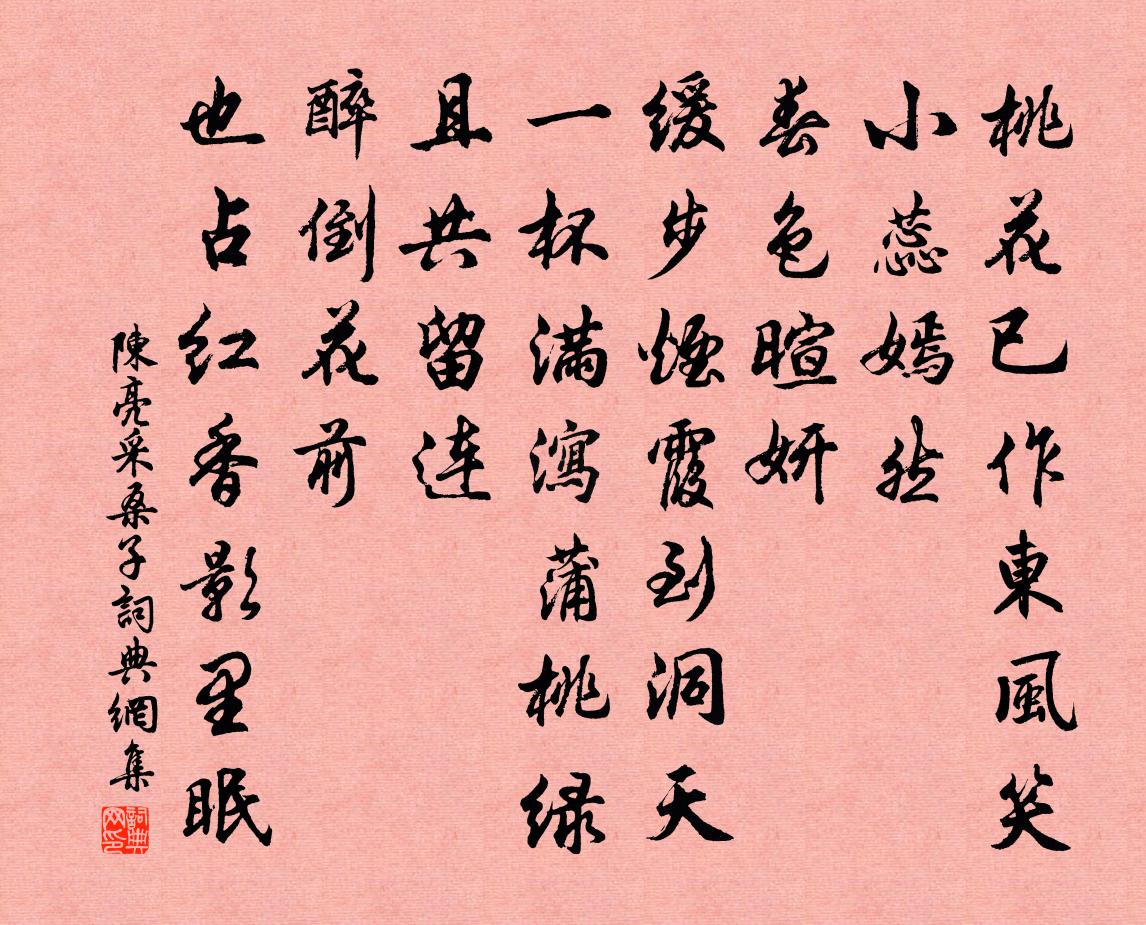 桃花已作東風笑
小蕊嫣然
春色暄妍
緩步煙霞到洞天
一杯滿瀉蒲桃绿
且共留连
醉倒花前
也占红香影里眠
陳亮采桑子詞典網集
詞典网印